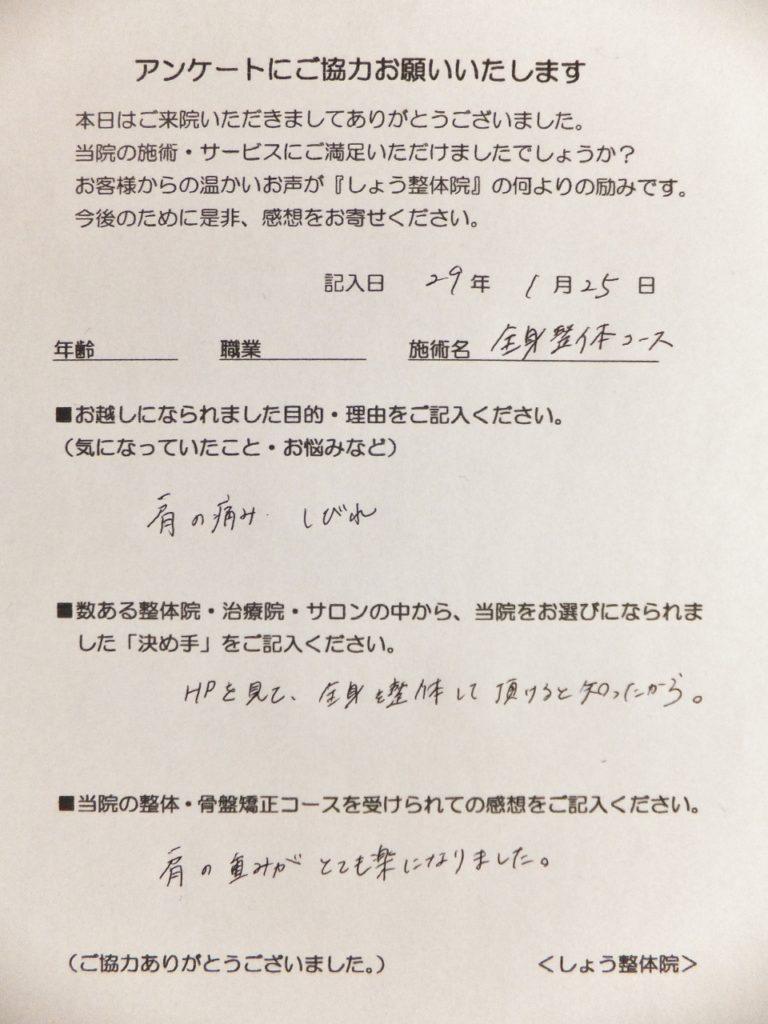 アンケートにご協力お願いいたします
本日はご来院いただきましてありがとうございました。
当院の施術・サービスにご満足いただけましたでしょうか？
お客様からの温かいお声が『しょう整体院』の何よりの励みです。
今後のために是非、感想をお寄せください。
記入日 29年 1月25日
年齢 職業 施術名 全身整体コース
■お越しになられました目的・理由をご記入ください。
（気になっていたこと・お悩みなど）
肩の痛み. しびれ
■数ある整体院・治療院・サロンの中から、当院をお選びになられま
した「決め手」をご記入ください。
HPを見て、全身を整体して頂けると知ったから。
■当院の整体・骨盤矯正コースを受けられての感想をご記入ください。
肩の重みがとても楽になりました。
（ご協力ありがとうございました。） ＜しょう整体院＞